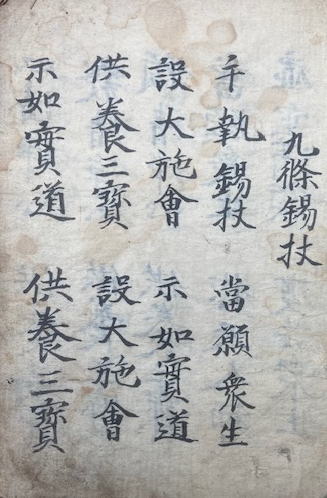 九條錫杖
手執錫杖 當願衆生
設大施會 示如實道
供養三寶 設大施會
示如實道 供養三寶